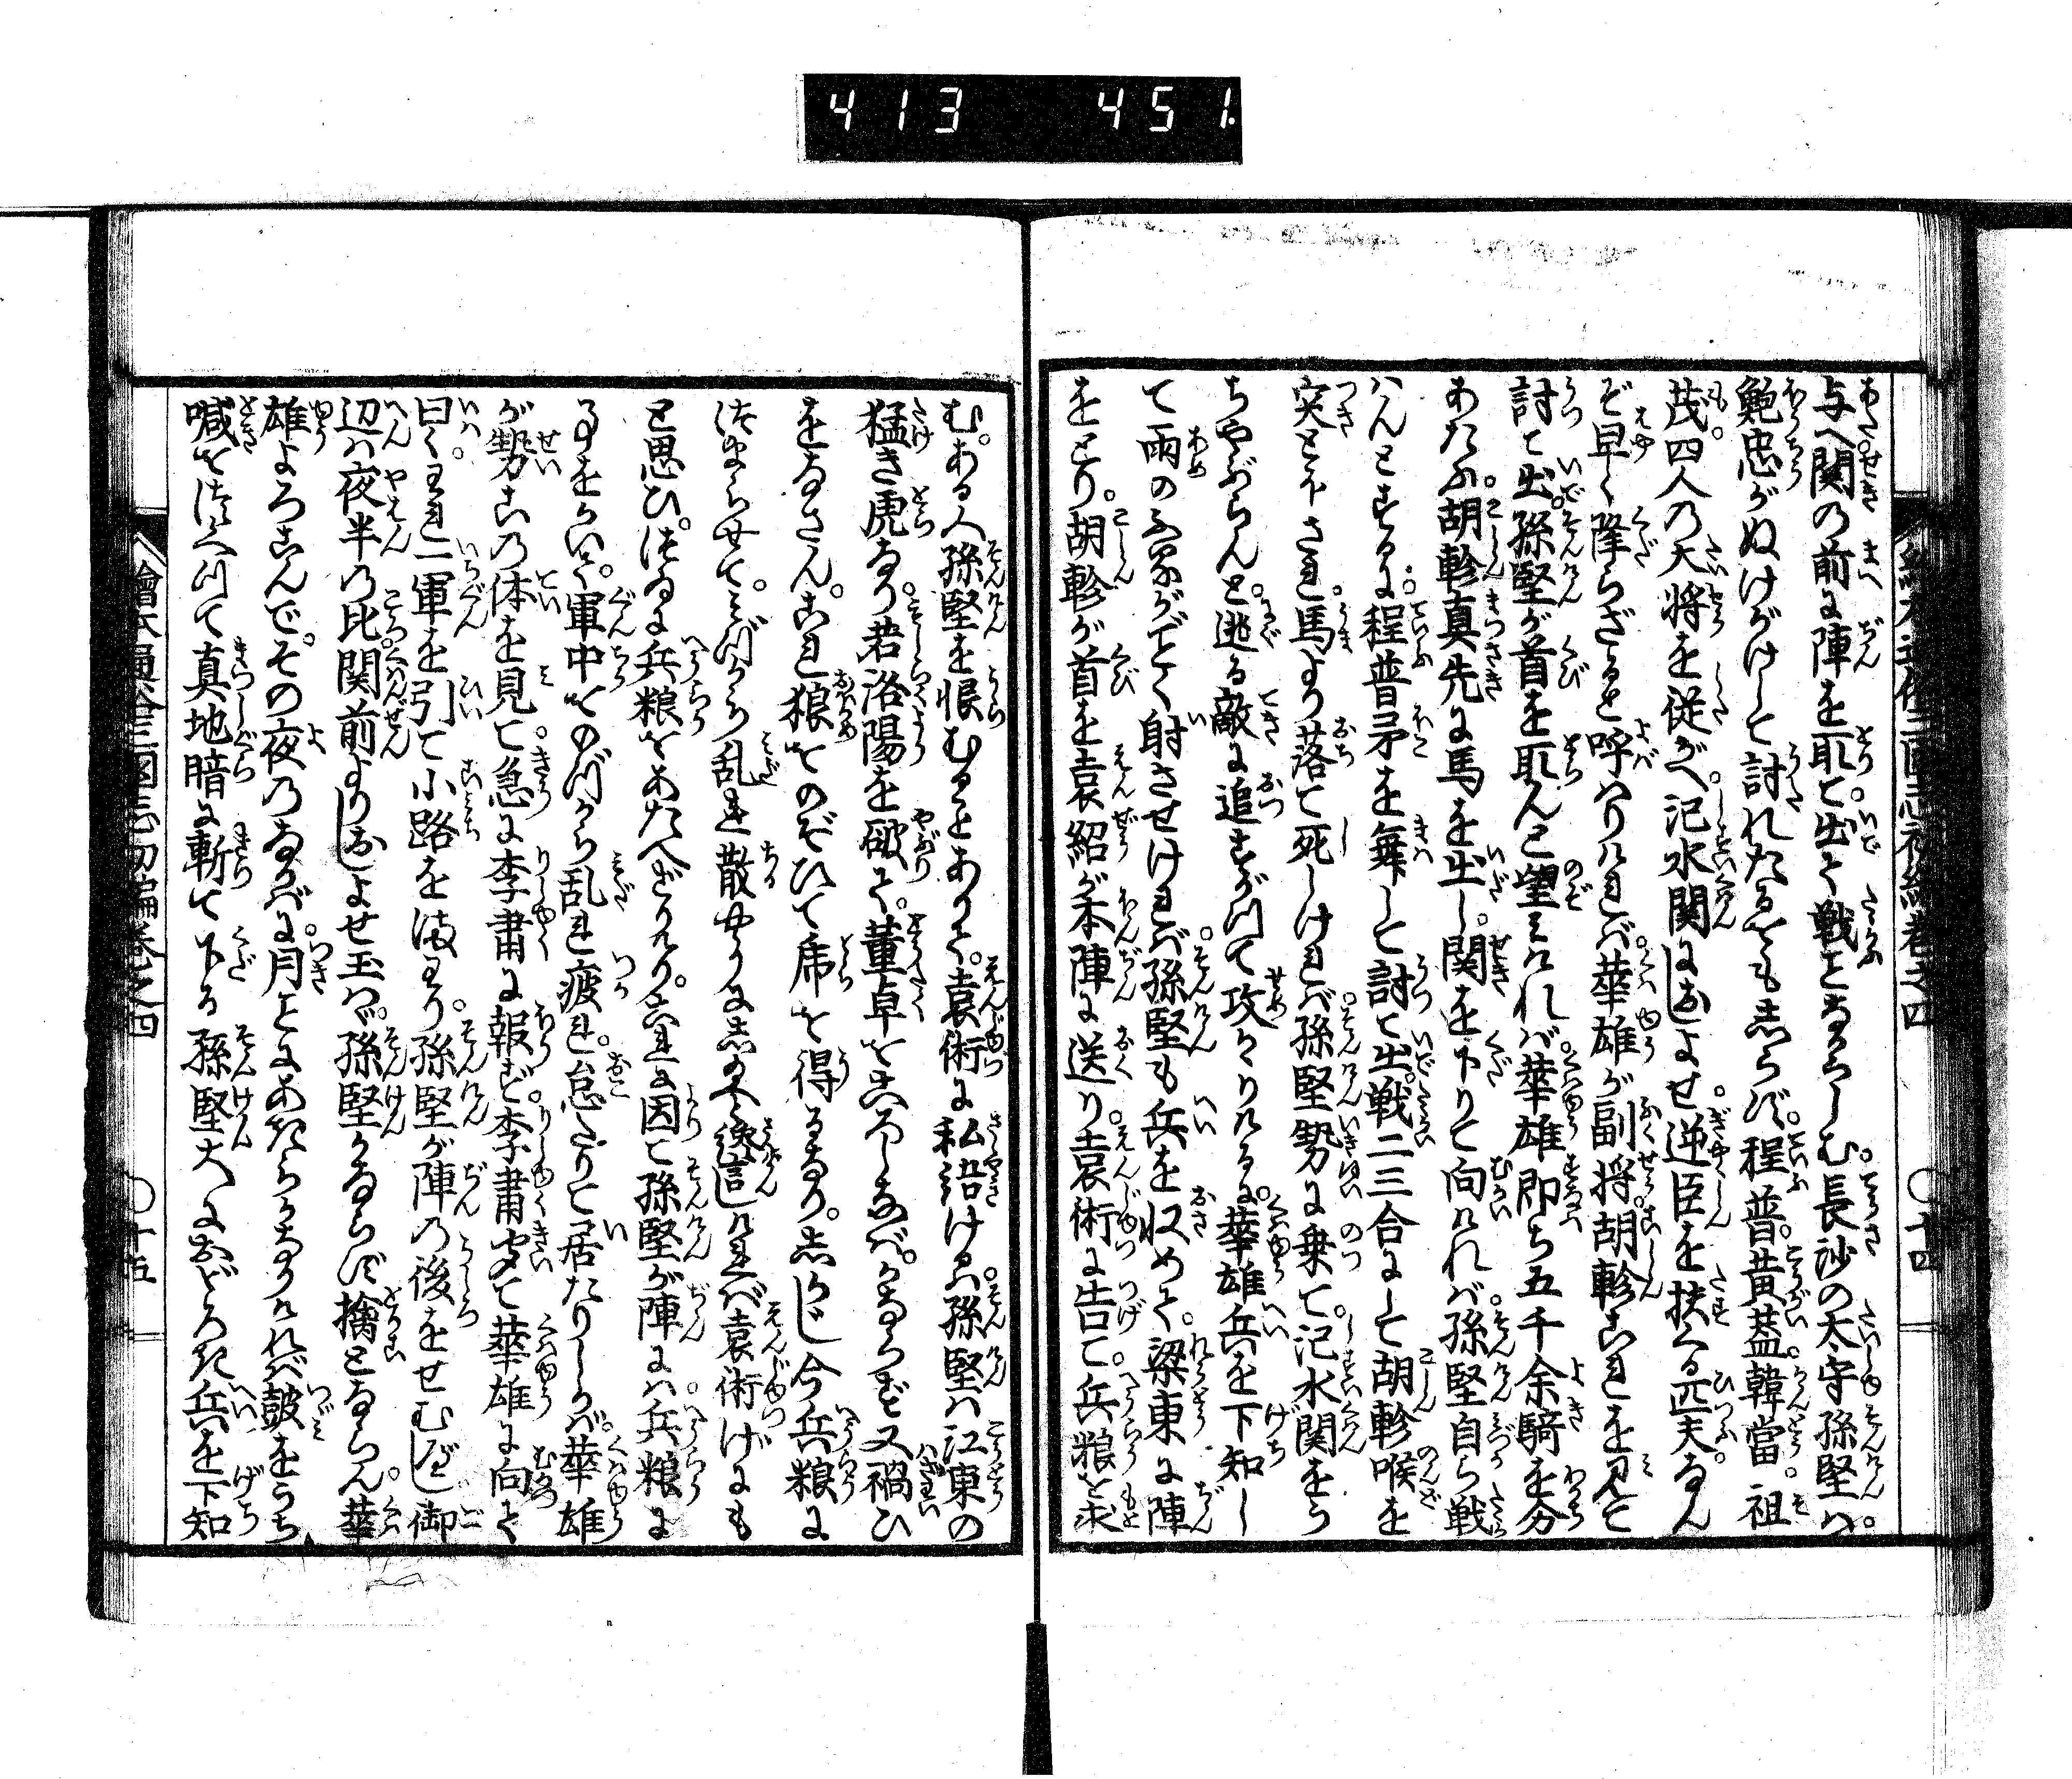 413 451
与へ関の前に陣を取て出て戦となさしむ。長沙の太守孫堅ハ。
鮑忠がぬけがけして討れたるをも志らず。程普。黄蓋。韓當。祖
茂。四人の大将を従がへ。汜水関におしよせ。逆臣を扶くる匹夫。なん
ぞ早く降らざると呼ハりけれバ。華雄が副将。胡軫これを見て
討て出。孫堅が首を取んと望ミけれバ。華雄即ち五千余騎を分
あたふ。胡軫真先に馬を出し。関を下りて向けれバ。孫堅自ら戦
ハんとするに。程普矛を舞して討て出。戦二三合にして胡軫喉を
突とふされ。馬より落て死しけれバ。孫堅勢に乗て。汜水関をう
ちやぶらんと。逃る敵に追すがつて攻けるに。華雄兵を下知し
て雨のふるがごとく射させけれバ。孫堅も兵を収めて。梁東に陣
をとり。胡軫が首を袁紹が本陣に送り。袁術に告て。兵粮を求
む。ある人孫堅を恨むるとありて。袁術に私語けるハ。孫堅ハ江東の
猛き虎なり。若洛陽を破て。董卓をころしなバ。かならず又禍ひ
をなさん。これ狼をのぞひて虎を得るなり。志かじ今兵粮に
つまらせて。ミづから乱れ散せんに志かくと讒言しけれバ袁術げにも
と思ひ。つゐに兵粮をあたへざりけり。これに因て孫堅が陣にハ。兵粮に
事をかいて。軍中をのづから乱れ疲れ。怠たりて居たりしかバ。華雄
が勢この体を見て。急に李粛に報ず。李粛夜て華雄に向て
曰く。われ一軍を引て小路をまわり。孫堅が陣の後をせむべし御
辺ハ夜半の比。関前よりおしよせ玉ハゞ。孫堅かならず擒とならん。華
雄よろこんで。その夜のなかバに。月とにあきらかなりけれバ鼓をうち
喊をつくつて真地暗に斬て下る孫堅大におどろき兵を下知
繪本通俗三國志初編巻之四
〇十四
繪本通俗三國志初編巻之四
〇十五